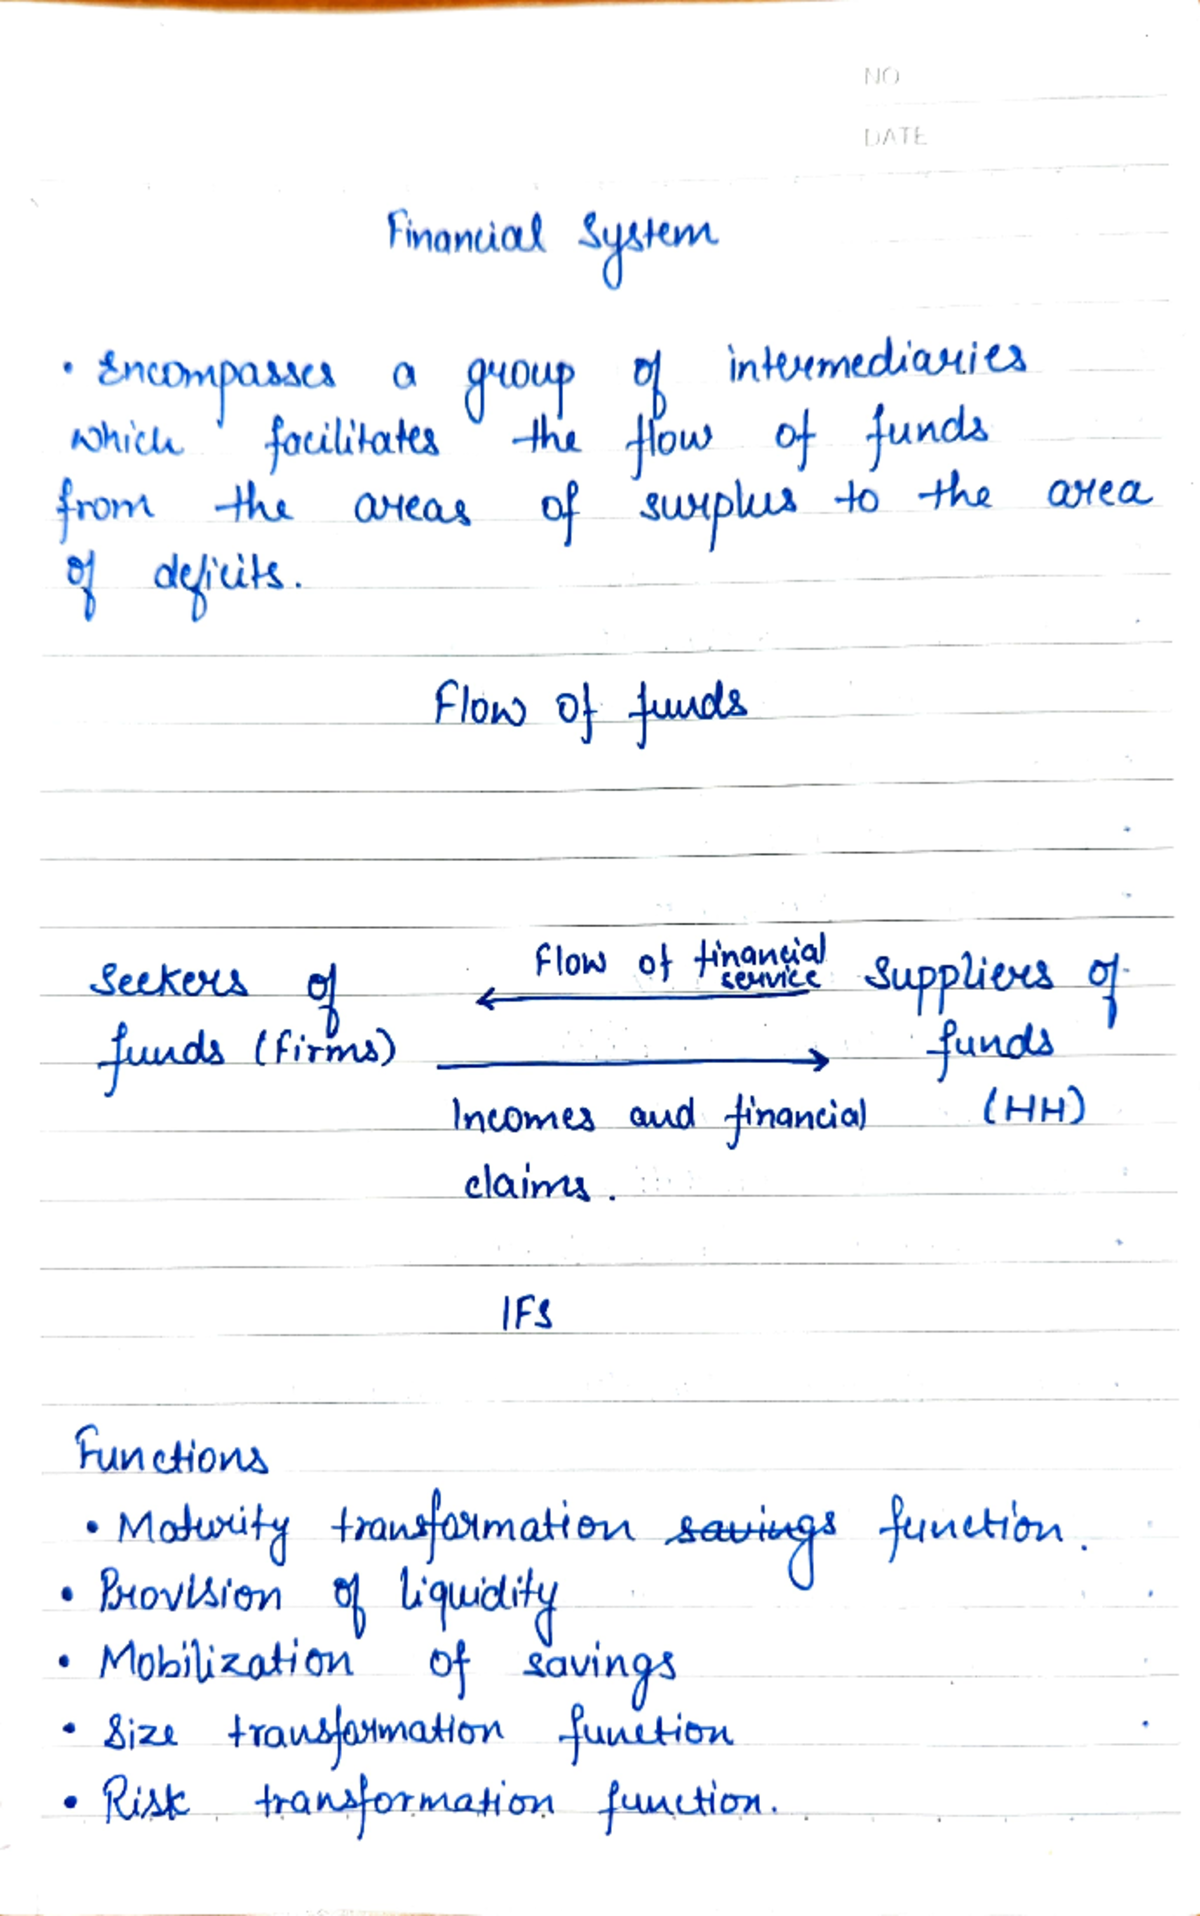 NO
DATE
Financial System
• Encompasses a group of intermediaries
which facilitates the flow of funds
from the areas of surplus to the area
of deficits.
Flow of funds
Flow of financial
service
Seekers of
funds (firms)
Suppliers of
funds
(HH)
Incomes and financial
claims.
IFS
Functions
• Maturity transformation savings function.
• Provision of liquidity
• Mobilization of savings
• Size transformation function
• Risk transformation function.